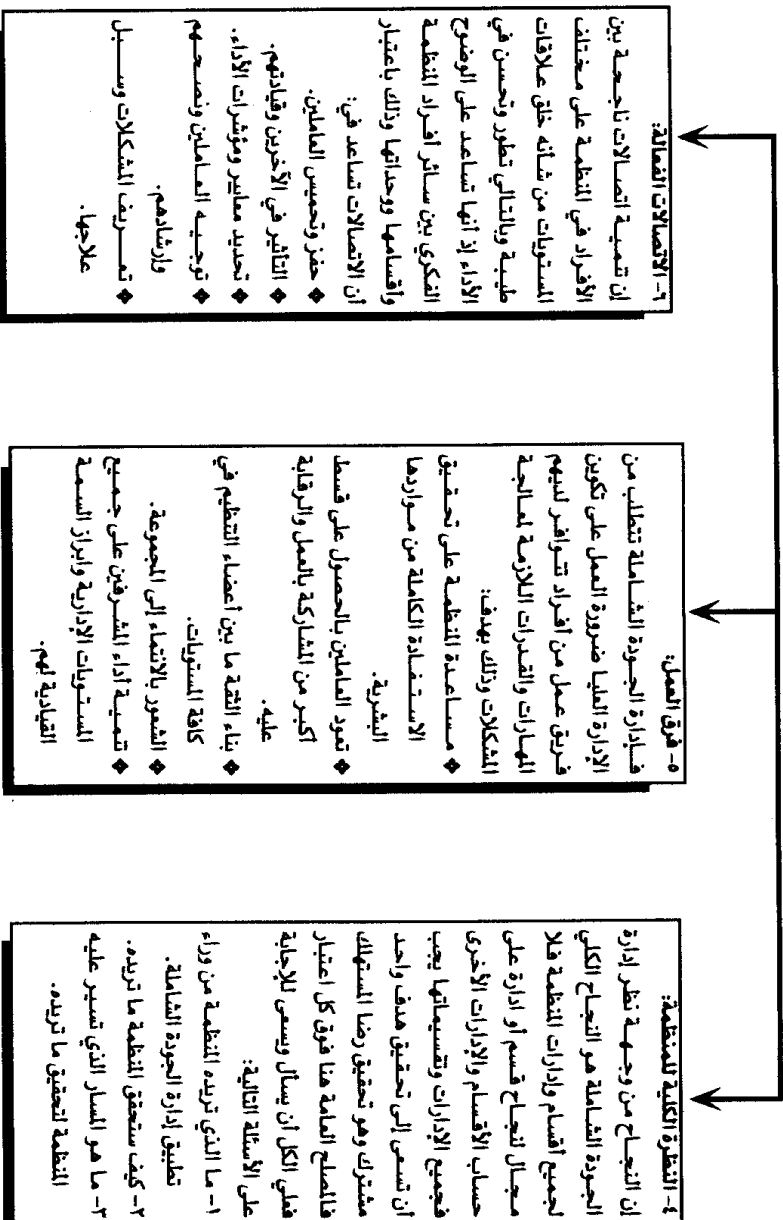 ٤- النظرة الكلية للمنظمة:
إن النجاح من وجهة نظر إدارة
الجودة الشاملة هو النجاح الكلي
لجميع أقسام وإدارات المنظمة فلا
مجال لنجاح قسم أو ادارة على
حساب الأقسام والإدارات الأخرى
فجميع الإدارات وتقسيماتها يجب
أن تسعى إلى تحقيق هدف واحد
مشترك وهو تحقيق رضا المستهلك
فالمصلح العامة هنا فوق كل اعتبار
فعلي الكل أن يسأل ويسعى للإجابة
على الأسئلة التالية:
١- ما الذي تريده المنظمة من وراء
تطبيق إدارة الجودة الشاملة.
٢- كيف ستحقق المنظمة ما تريده.
٣- ما هو المسار الذي تسير عليه
المنظمة لتحقيق ما تريده.
٥- فرق العمل:
فإدارة الجودة الشاملة تتطلب من
الإدارة العليا ضرورة العمل على تكوين
فريق عمل من أفراد تتوافر لديهم
المهارات والقدرات اللازمة لمعالجة
المشكلات وذلك بهدف:
❖ مساعدة المنظمة على تحقيق
الاستفادة الكاملة من مواردها
البشرية.
❖ تعود العاملين بالحصول على قسط
أكبر من المشاركة بالعمل والرقابة
عليه.
❖ بناء الثقة ما بين أعضاء التنظيم في
كافة المستويات.
❖ الشعور بالانتماء إلى المجموعة.
❖ تنمية أداء المشرفين على جميع
المستويات الإدارية وابراز السمة
القيادية لهم.
٦- الاتصالات الفعالة:
إن تنمية اتصالات ناجحة بين
الأفراد في المنظمة على مختلف
المستويات من شأنه خلق علاقات
طيبة وبالتالي تطور وتحسن في
الأداء إذ أنها تساعد على الوضوح
الفكري بين سائر أفراد المنظمة
وأقسامها ووحداتها وذلك باعتبار
أن الاتصالات تساعد في:
❖ حفز وتحميس العاملين.
❖ التأثير في الآخرين وقيادتهم.
❖ تحديد معايير ومؤشرات الأداء.
❖ توجيه العاملين ونصحهم
وإرشادهم.
❖ تعريف المشكلات وسبل
علاجها.